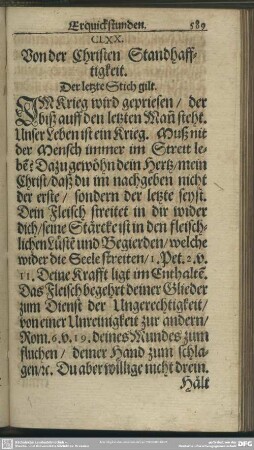 Erquickstunden. 589
CLXX.
Von der Christen Standhaff-
tigkeit.
Der letzte Stich gilt.
IM Krieg wird gepriesen / der
biß auff den letzten Mañ steht.
Unser Leben ist ein Krieg. Muß nit
der Mensch immer im Streit le-
bē? Dazu gewöhn dein Hertz / mein
Christ / daß du im nachgeben nicht
der erste / sondern der letzte seyst.
Dein Fleisch streitet in dir wider
dich / seine Stärcke ist in den fleisch-
lichen Lüstē und Begierden / welche
wider die Seele streiten / 1. Pet. 2. v.
11. Deine Krafft ligt im Enthaltē.
Das Fleisch begehrt deiner Glieder
zum Dienst der Ungerechtigkeit /
von einer Unreinigkeit zur andern /
Rom. 6. v. 19. deines Mundes zum
fluchen / deiner Hand zum schla-
gen / ꝛc. Du aber willige nicht drein.
Hält